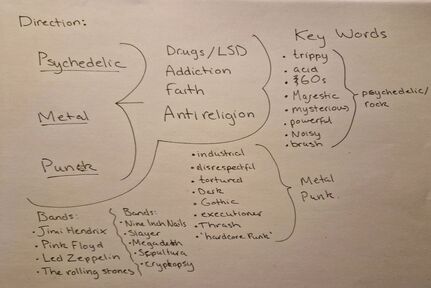 Direction:
Psychedelic
Metal
Punk
Drugs/LSD
Addiction
Faith
Antireligion
Key Words
• trippy
• acid
• 60s
• Majestic
• mysterious
• powerful
• Noisy
• brush
psychedelic/
rock
• industrial
• disrespectful
• tortured
• Dark
• Gothic
• executioner
• Thrash
• "hardcore Punk"
Metal
Punk.
Bands:
• Jimi Hendrix
• Pink Floyd
• Led Zeppelin
• The rolling stones
Bands:
• Nine Inch Nails
• Slayer
• Megadeth
• Sepultura
• Cryptopsy